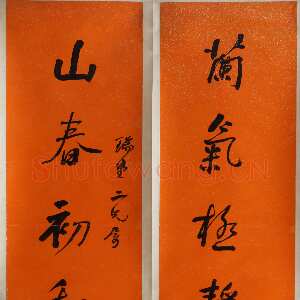 蘭氣極
山春初
二兄屬
Shufawang.CN